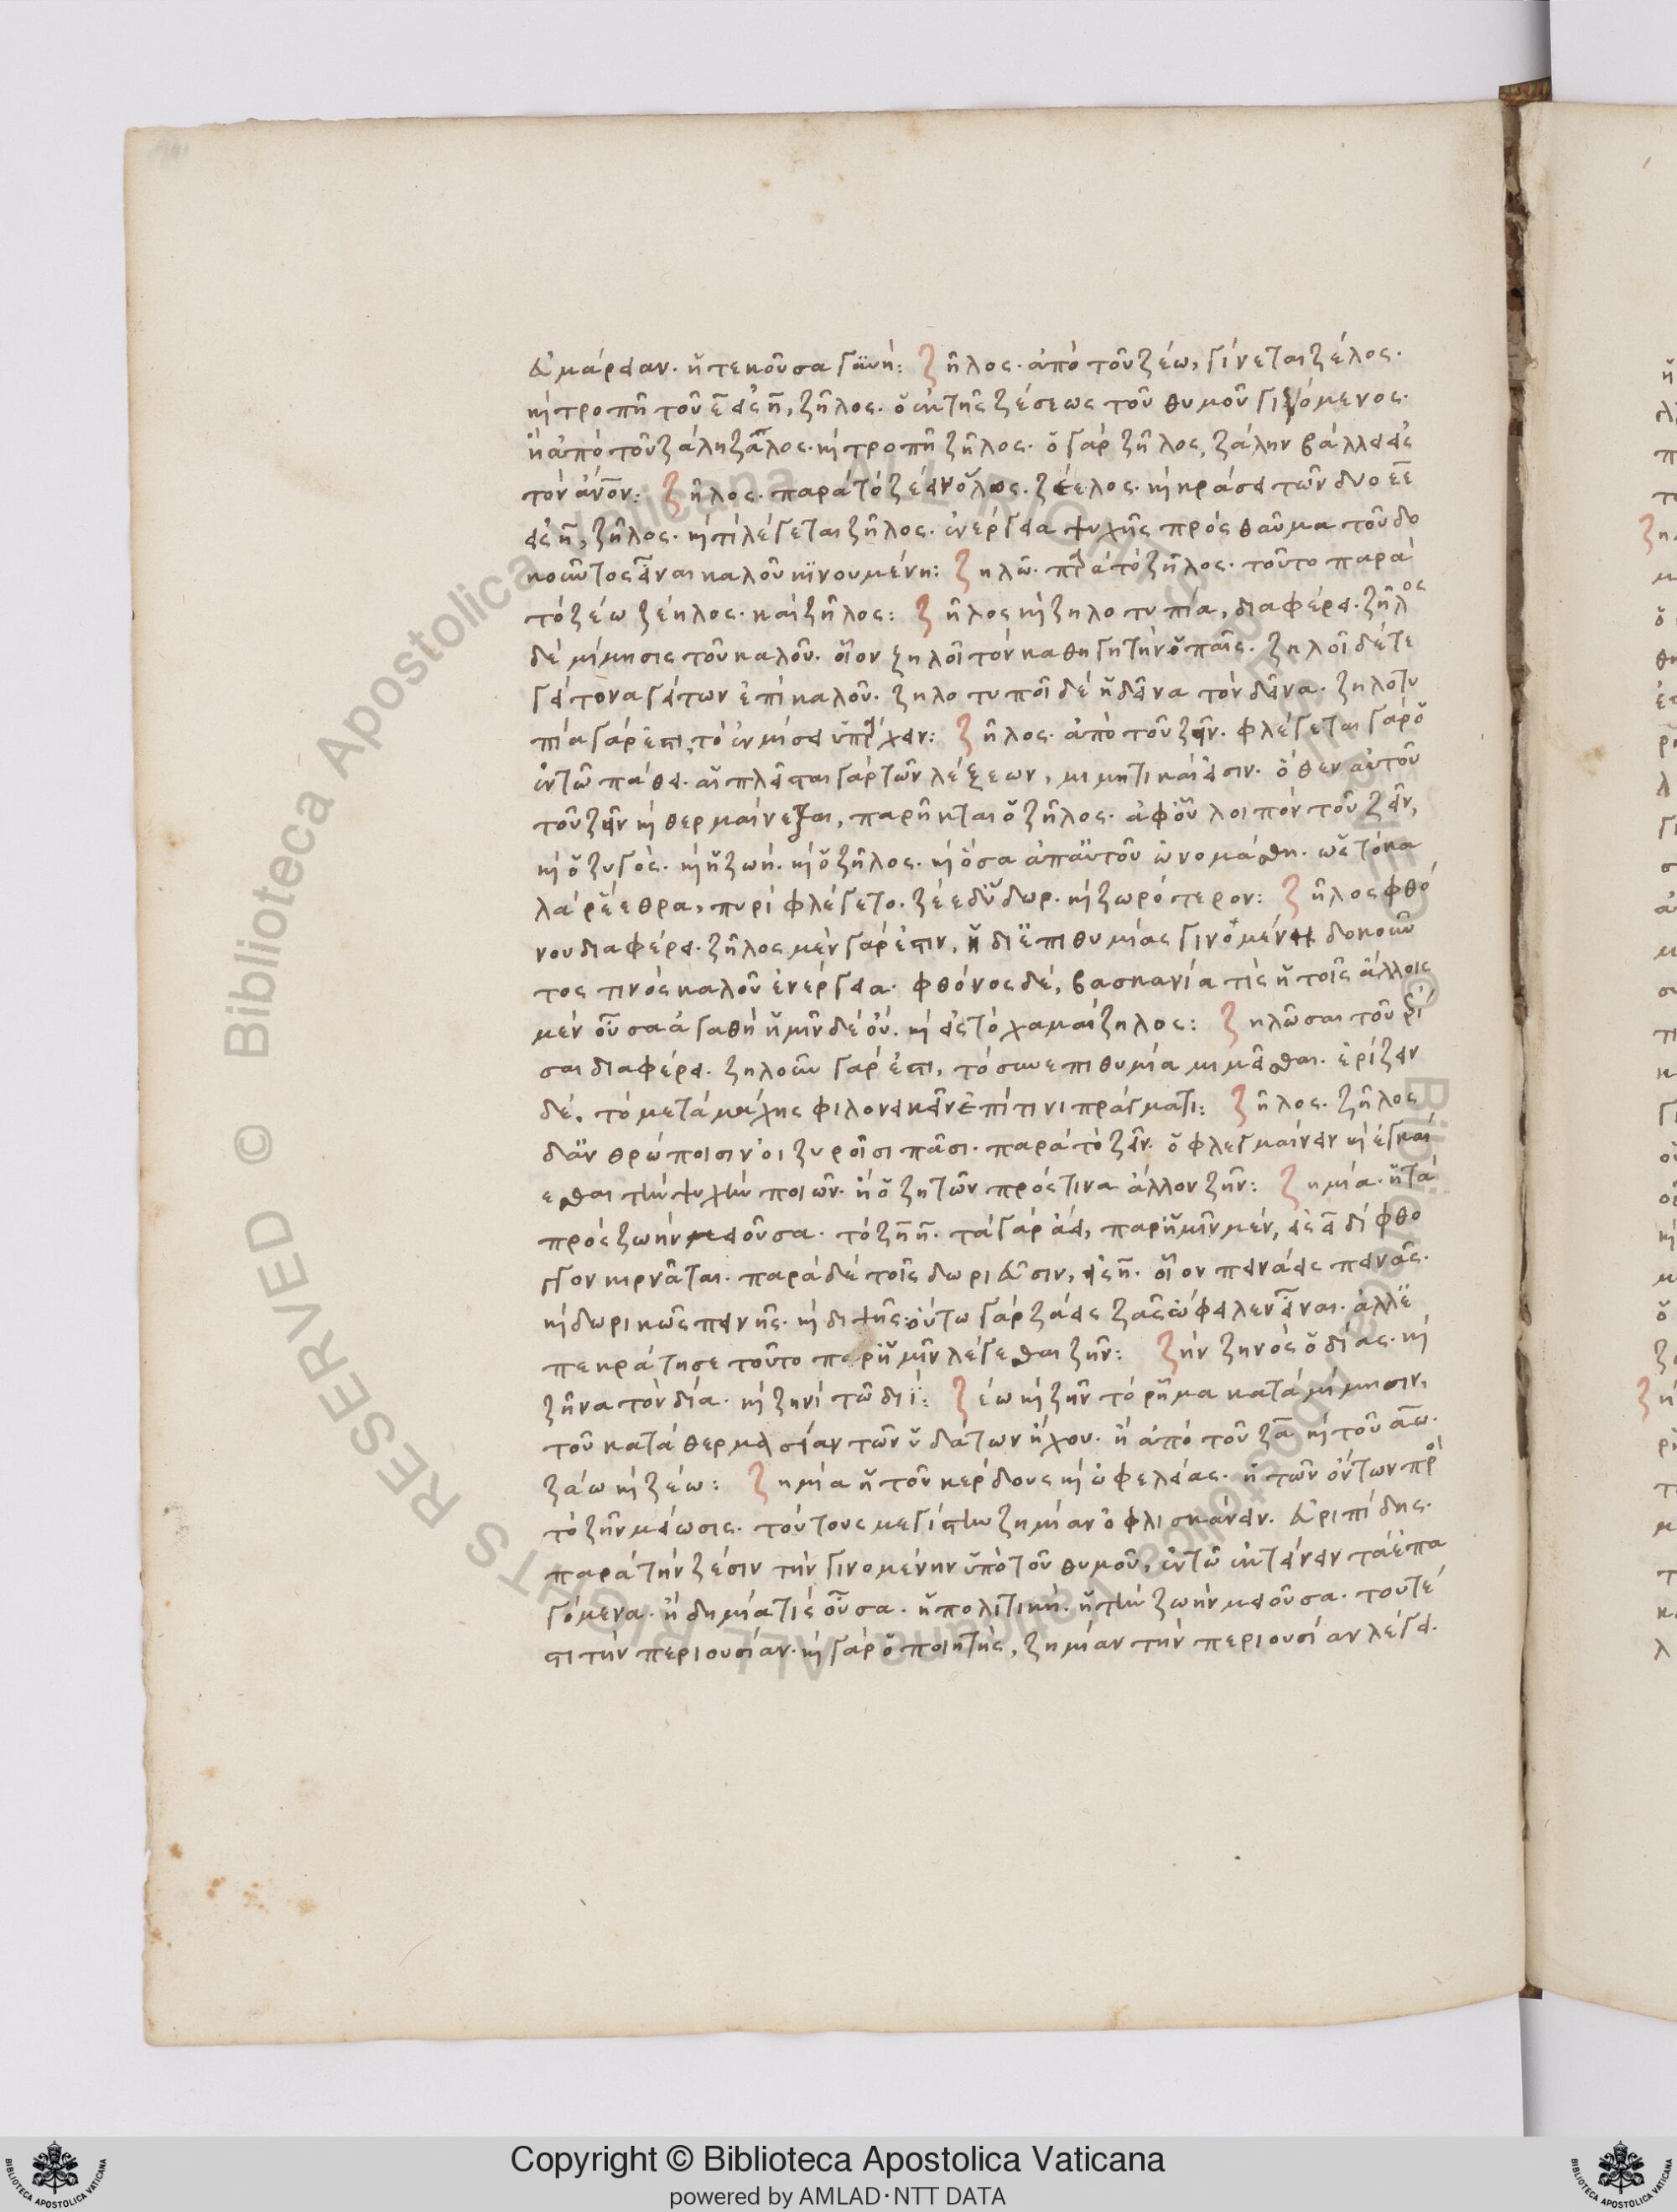 εὐμάρειαν. ἡ τεκοῦσα γυνή: Ζῆλος. ἀπὸ τοῦ ζέω, γίνεται ζέλος.
κὶ τροπῆ τοῦ ε̄ εἰς η̄, ζῆλος. ὁ ἐκ τῆς ζέσεως τοῦ θυμοῦ γινόμενος.
ἢ ἀπὸ τοῦ ζάλη ζᾶλος. κὶ τροπῆ ζῆλος. ὁ γὰρ ζῆλος, ζάλην βάλλει εἰς
τὸν ἄνον: Ζῆλος. παρὰ τὸ ζέειν ὅλως. ζέελος. κὶ κράσει τῶν δυο ε̄ε̄
εἰς η̄, ζῆλος. κὶ τί λέγεται ζῆλος. ἐνέργεια ψυχῆς πρὸς θαῦμα τοῦ δο
κοῦντος εἶναι καλοῦ κινουμένη: Ζηλῶ. παρὰ τὸ ζῆλος. τοῦτο παρὰ
τὸ ζέω ζέηλος. καὶ ζῆλος: Ζῆλος κὶ ζηλοτυπία, διαφέρει. ζῆλος
δὲ μίμησις τοῦ καλοῦ. οἷον ζηλοῖ τὸν καθηγητὴν ὁ παῖς. ζηλοῖ δέ τε
γείτονα γείτων ἐπὶ καλοῦ. ζηλοτυποῖ δὲ ἡ δεῖνα τὸν δεῖνα. ζηλοτυ
πία γάρ ἐστι, τὸ ἐν μίσει ὑπάρχειν: Ζῆλος. ἀπὸ τοῦ ζεῖν. φλέγεται γὰρ ὁ
ἐν τῶ πάθει. αἱ πλεῖσται γὰρ τῶν λέξεων, μιμητικαί εἰσιν. ὅθεν ἀυτοῦ
τοῦ ζεῖν κὶ θερμαίνεσθαι, παρῆκται ὁ ζῆλος. ἀφ οὗ λοιπὸν τοῦ ζεῖν,
κὶ ὁ ζυγός. κὶ ἡ ζωή. κὶ ὁ ζῆλος. κὶ ὅσα ἀπ αυτοῦ ὠνομάσθη. ὡς τὸ κα
λὰ ῥέεθρα, πυρὶ φλέγετο. ζέε δ ὕδωρ. κὶ ζωρότερον: Ζῆλος φθό
νου διαφέρει. ζῆλος μὲν γάρ ἐστιν, ἡ δι ἐπιθυμίας γινομένη δοκοῦν
τος τινὸς καλοῦ ἐνέργεια. φθόνος δέ, βασκανία τὶς ἡ τοῖς ἄλλοις
μὲν οὖσα ἀγαθὴ ἡμῖν δὲ οὔ. κὶ εἰς τὸ χαμαίζηλος: Ζηλῶσαι τοῦ ἐρί
σαι διαφέρει. ζηλοῦν γάρ ἐστι, τὸ συν επιθυμία μιμεῖσθαι. ἐρίζειν
δέ, τὸ μετὰ μάχης φιλονεικεῖν ἐπί τινι πράγματι: Ζῆλος. ζῆλος
δ ἀνθρώποισιν ὀιζυροῖσι πᾶσι. παρὰ τὸ ζεῖν. ὁ φλεγμαίνειν κὶ ἐγκαί
εσθαι τὴν ψυχὴν ποιῶν. ἢ ὁ ζητῶν πρός τινα ἄλλον ζῆν: Ζημία. ἡ τὰ
πρὸς ζωὴν μειοῦσα. τὸ ζῆ η̄. τὰ γὰρ ἀεί, παρ ἡμῖν μέν, εἰς ει δίφθο
γγον κιρνᾶται. παρὰ δὲ τοῖς δωριεῦσιν, εἰς η̄. οἷον πεινάεις πεινᾶς.
κὶ δωρικῶς πεινῆς. κὶ διψῆς: οὕτω γὰρ ζάεις ζᾶς ὤφειλεν εἶναι. ἀλλ ἐ
πεκράτησε τοῦτο παρ ἡμῖν λέγεσθαι ζῆν: Ζὴν ζηνὸς ὁ δίας. κὶ
ζῆνα τὸν δία. κὶ ζηνὶ τῶ διΐ: Ζέω κὶ ζῆν τὸ ρῆμα κατὰ μίμησιν,
τοῦ κατὰ θερμασίαν τῶν ὑδάτων ἤχου. ἢ ἀπὸ τοῦ ζα κὶ τοῦ αω.
ζάω κὶ ζέω: Ζημία ἡ τοῦ κέρδους κὶ ὠφελείας. ἢ τῶν ὄντων πρὸς
τὸ ζῆν μείωσις. τούτους μεγίστην ζημίαν ὀφλισκάνειν. εὐριπίδης.
παρὰ τὴν ζέσιν τὴν γινομένην ὑπὸ τοῦ θυμοῦ, ἐν τῶ ἐκτείνειν τὰ ἐπα
γόμενα. ἢ δημία τὶς οὖσα. ἡ πολιτικὴ. ἡ τὴν ζωὴν μειοῦσα. τουτέ
στι τὴν περιουσίαν. κὶ γὰρ ὁ ποιητής, ζημίαν τὴν περιουσίαν λέγει.
Copyright © Biblioteca Apostolica Vaticana
powered by AMLAD·NTT DATA